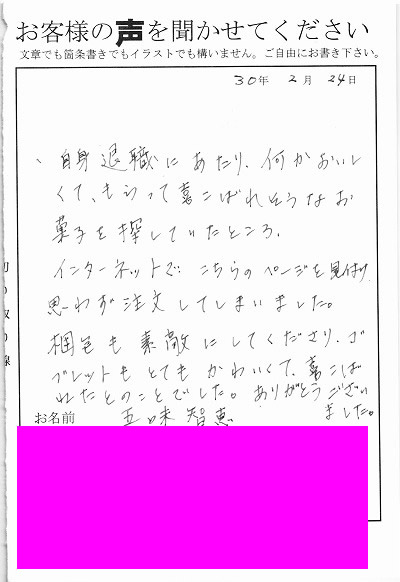 お客様の声を聞かせてください
文章でも箇条書きでもイラストでも構いません。ご自由にお書き下さい。
30年 2月 24日
、自身退職にあたり、何かおいし
くて、もらって喜こばれそうなお
菓子を探していたところ、
インターネットで こちらのページを見付け
思わず注文してしまいました。
梱包も素敵にしてくださり、ゴ
ブレットもとてもかわいくて、喜こば
れたとのことでした。ありがとうござい
ました。
お名前 五味 智恵
切り取り線